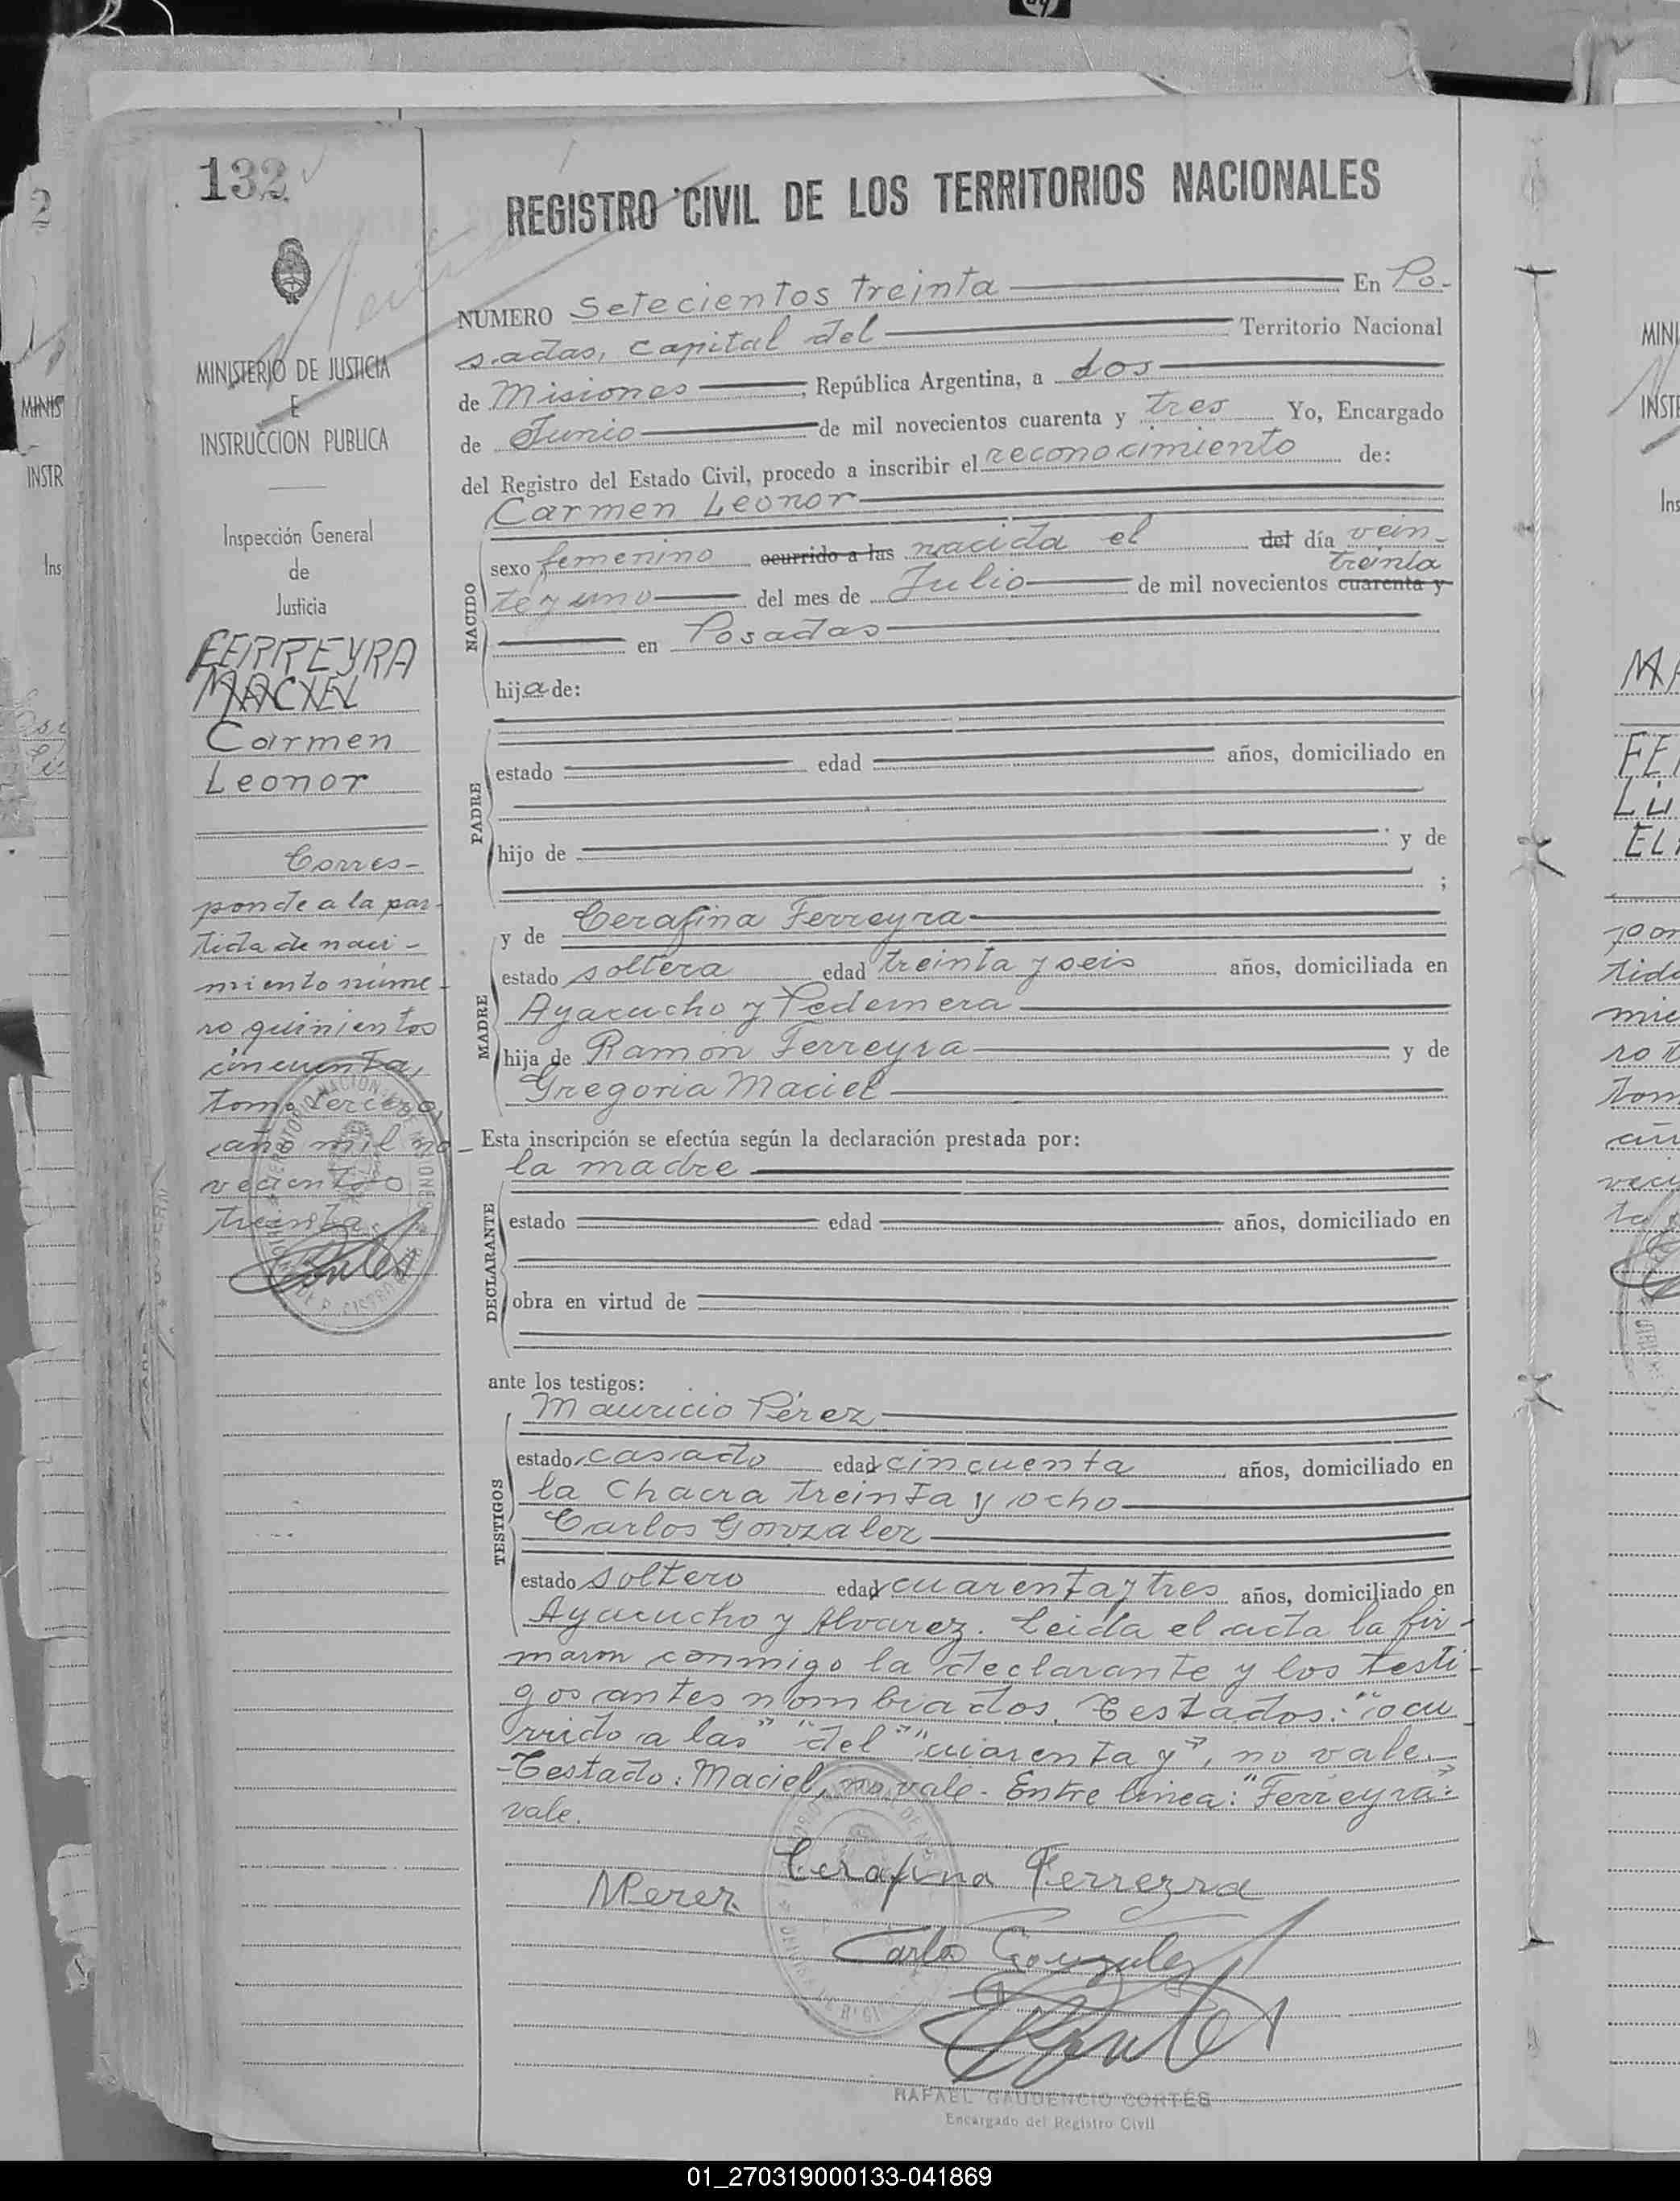 132
REGISTRO CIVIL DE LOS TERRITORIOS NACIONALES
MINISTERIO DE JUSTICIA
E
INSTRUCCION PUBLICA
Inspección General
de
Justicia
FERREYRA
MACIEL
Carmen
Leonor
Corres-
ponde a la par-
tida de naci-
miento núme-
ro quinientos
cincuenta,
tomo tercero,
año mil no-
vecientos
treinta
NUMERO Setecientos treinta En Po-
sadas, capital del Territorio Nacional
de Misiones, República Argentina, a dos
de Junio de mil novecientos cuarenta y tres Yo, Encargado
del Registro del Estado Civil, procedo a inscribir el reconocimiento de:
Carmen Leonor
NACIDO
sexo femenino ocurrido a las nacida el del día vein-
treinta
te y uno del mes de Julio de mil novecientos cuarenta y
en Posadas
hija de:
PADRE
estado edad años, domiciliado en
hijo de y de
;
MADRE
y de Cerafina Ferreyra
estado soltera edad treinta y seis años, domiciliada en
Ayacucho y Pedernera
hija de Ramón Ferreyra y de
Gregoria Maciel
Esta inscripción se efectúa según la declaración prestada por:
la madre
DECLARANTE
estado edad años, domiciliado en
obra en virtud de
ante los testigos:
TESTIGOS
Mauricio Pérez
estado casado edad cincuenta años, domiciliado en
la Chacra treinta y ocho
Carlos Gonzalez
estado soltero edad cuarenta y tres años, domiciliado en
Ayacucho y Alvarez. Leida el acta la fir-
maron conmigo la declarante y los testi-
gos antes nombrados. Testados: "ocu-
rrido a las" "del" "cuarenta y", no vale.
-Testado: Maciel, no vale - Entre linea: "Ferreyra":
vale.
Cerafina Ferreyra
MPerez
Carlos Gonzalez
RAFAEL GAUDENCIO CORTÉS
Encargado del Registro Civil
01_270319000133-041869
2
MINIS
INSTR
Ins